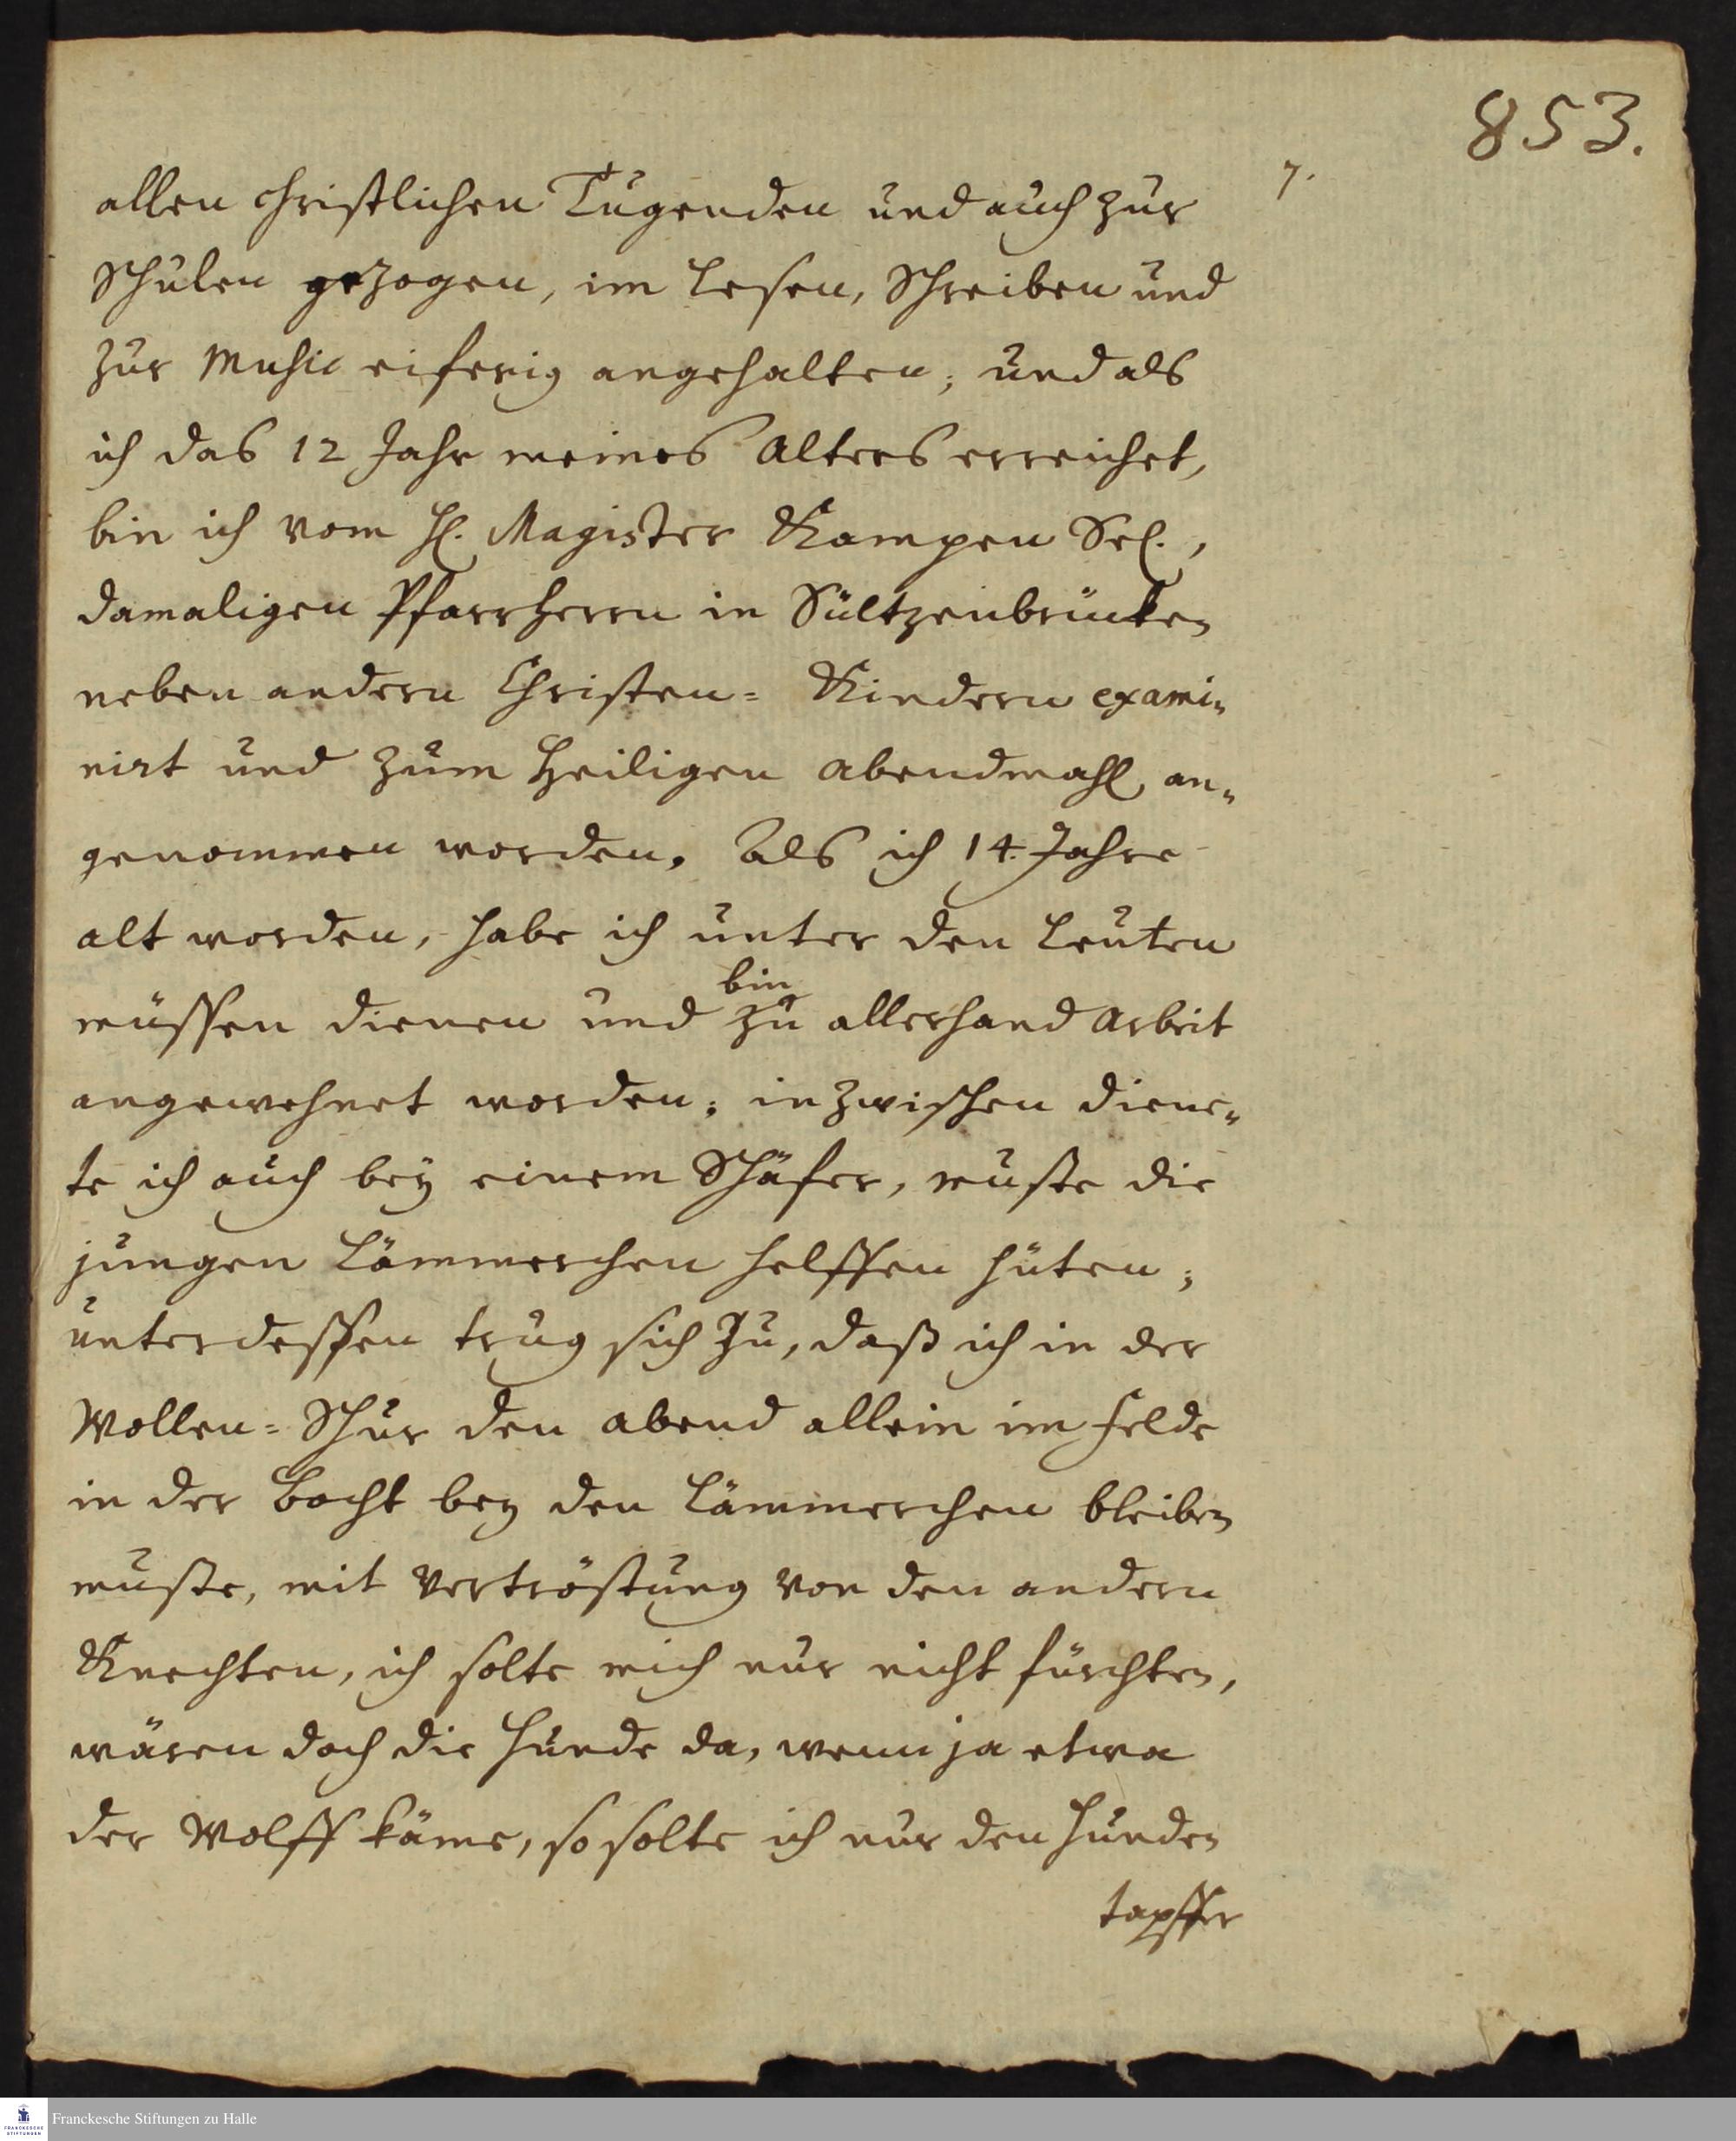 853.
7.
allen christlichen Tugenden und auch zur
Schulen gezogen, im Lesen, Schreiben und
zur Music eiferig angehalten; und als
ich das 12 Jahr meines Alters erreichet,
bin ich vom H. Magister Kampen Sel.,
damaligen Pfarrherrn in Sültzenbrücken
neben andern Christen= Kindern exami„
nirt und zum Heiligen Abendmahl an„
genommen worden. Als ich 14. Jahre
alt worden, habe ich unter den Leuten
bin
müssen dienen und zu allerhand Arbeit
angewehnet worden; inzwischen diene„
te ich auch bey einem Schäfer, muste die
jungen Lämmerchen helffen hüten;
unterdessen trug sich zu, daß ich in der
Wollen= Schur den abend allein im Felde
in der Bocht bey den Lämmerchen bleiben
muste, mit Vertröstung von den andern
Knechten, ich solte mich nur nicht fürchten,
wären doch die Hunde da, wenn ja etwa
der Wolff käme, so solte ich nur den Hunden
tapffer
Franckesche Stiftungen zu Halle
FRANCKESCHE
STIFTUNGEN